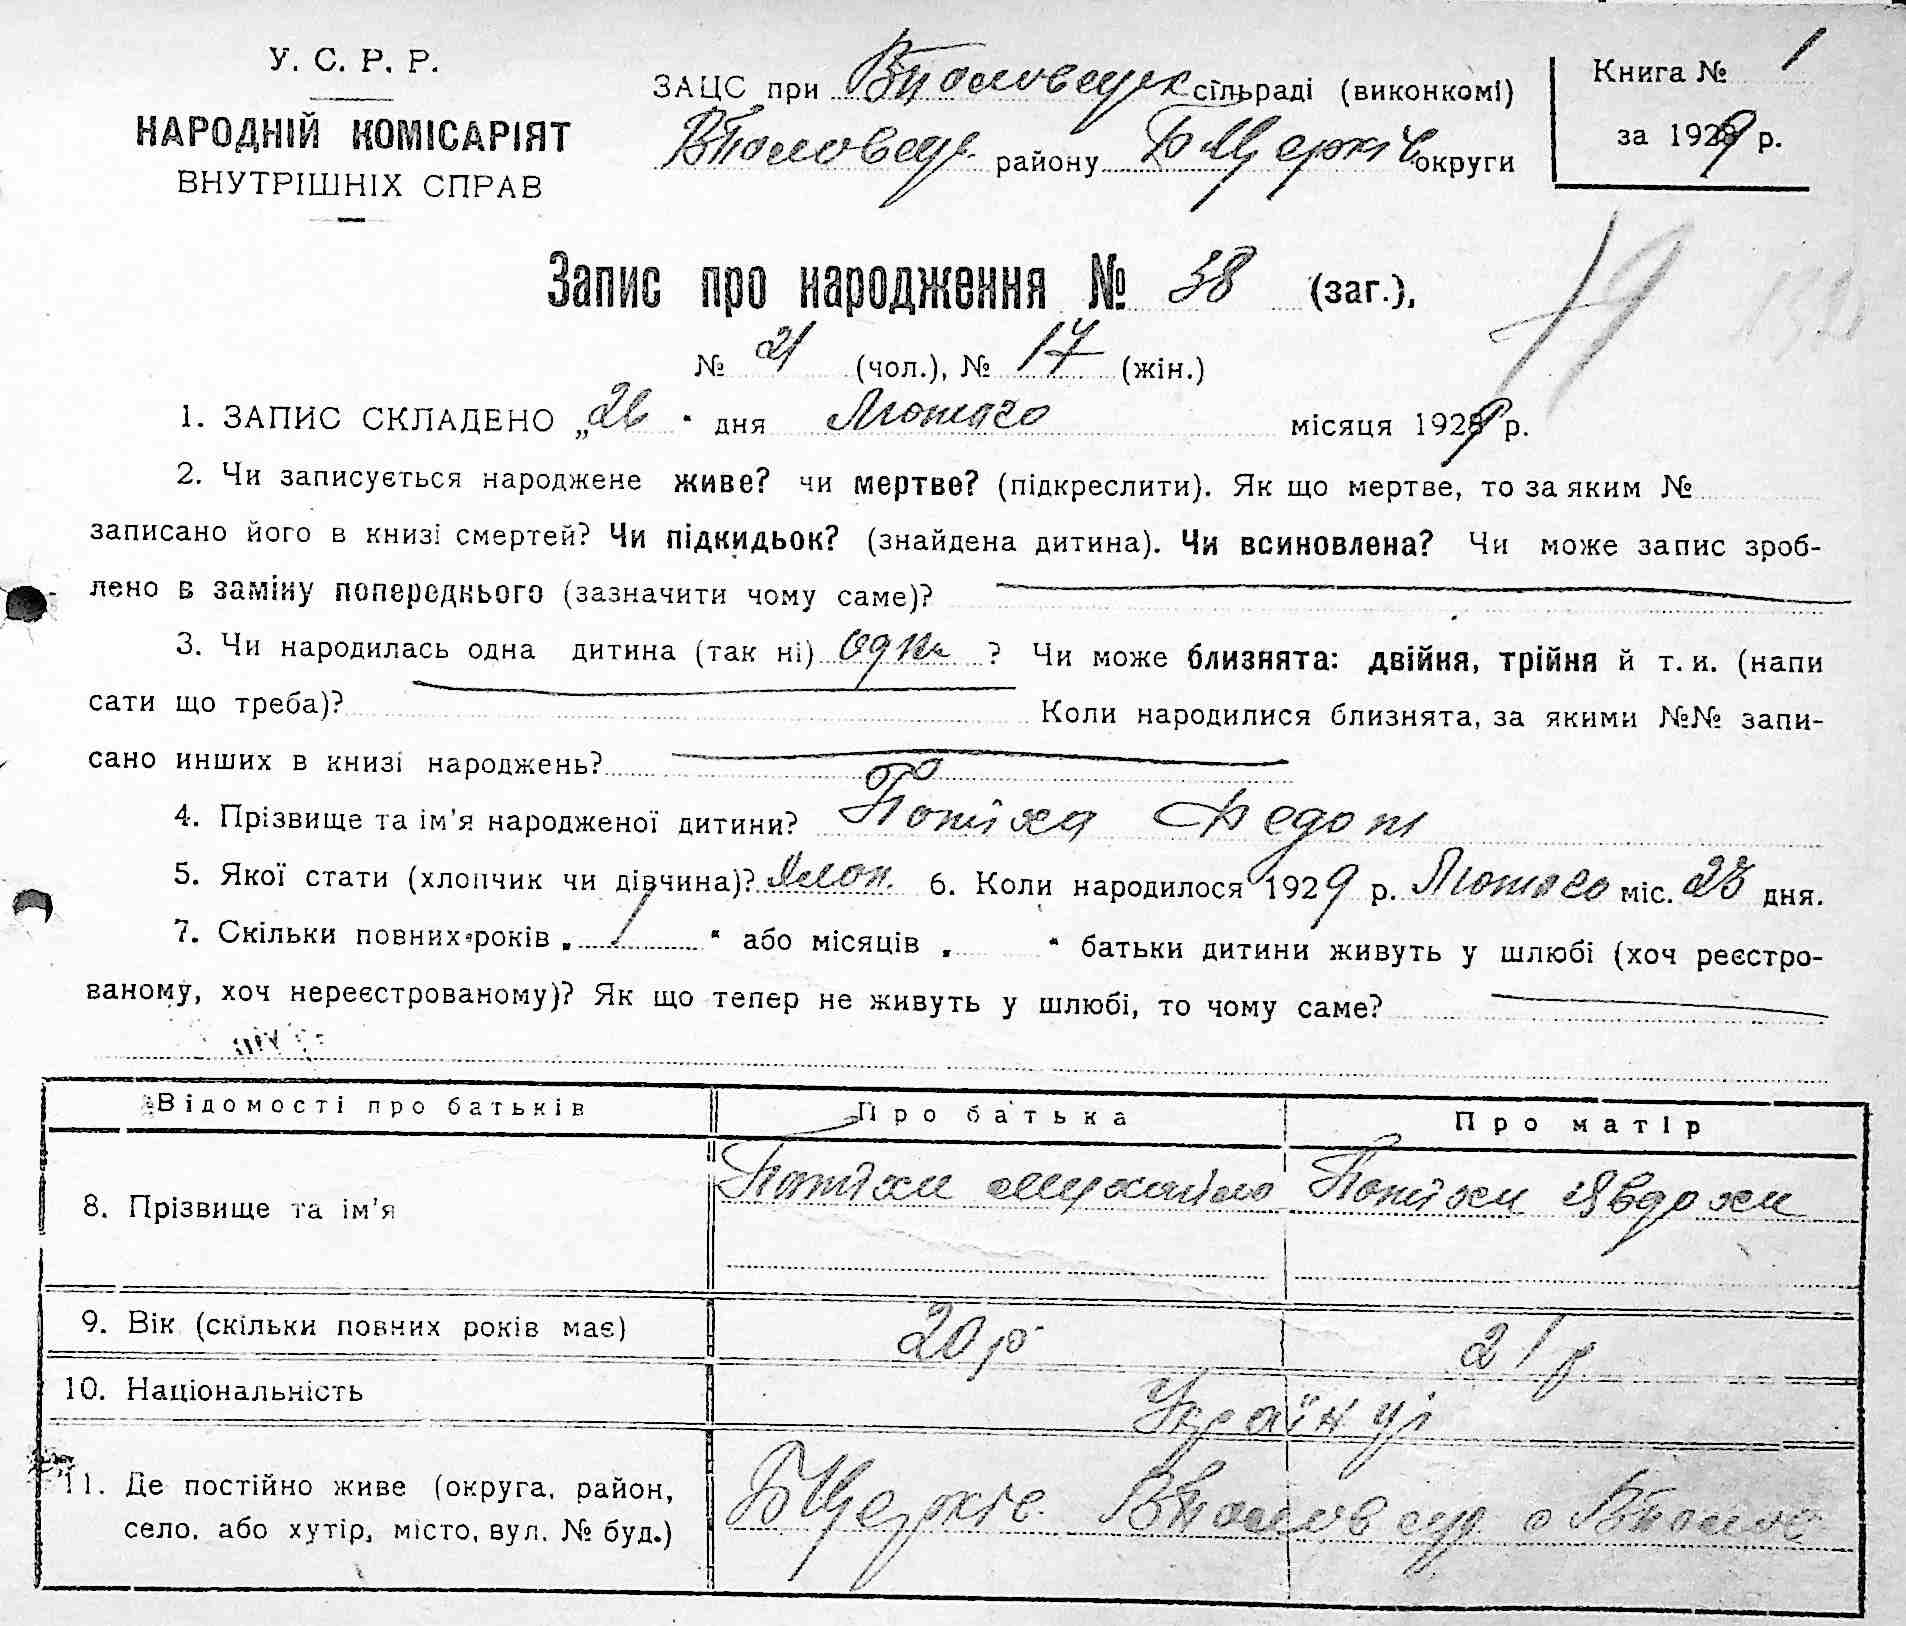 У. С. Р. Р.
НАРОДНІЙ КОМІСАРІЯТ
ВНУТРІШНІХ СПРАВ
ЗАЦС при ВПоловецьк сільраді (виконкомі)
ВПоловец. району БЦерків округи
Книга № 1
за 1929 р.
Запис про народження № 38 (заг.),
19
№ 21 (чол.), № 17 (жін.)
1. ЗАПИС СКЛАДЕНО „26" дня Лютого місяця 1929 р.
2. Чи записується народжене живе? чи мертве? (підкреслити). Як що мертве, то за яким №
записано його в книзі смертей? Чи підкидьок? (знайдена дитина). Чи всиновлена? Чи може запис зроб-
лено в заміну попереднього (зазначити чому саме)?
3. Чи народилась одна дитина (так ні) одна ? Чи може близнята: двійня, трійня й т. и. (напи
сати що треба)? Коли народилися близнята, за якими №№ запи-
сано инших в книзі народжень?
4. Прізвище та ім'я народженої дитини? Потіха Федот
5. Якої стати (хлопчик чи дівчина)? Хлоп. 6. Коли народилося 1929 р. Лютого міс. 23 дня.
7. Скільки повних років „ 1 " або місяців „ " батьки дитини живуть у шлюбі (хоч реєстро-
ваному, хоч нереєстрованому)? Як що тепер не живуть у шлюбі, то чому саме?
Відомості про батьків Про батька Про матір
8. Прізвище та ім'я Потіха Михайло Потіха Явдоха
9. Вік (скільки повних років має) 20 р 21 р
10. Національність Українці
11. Де постійно живе (округа, район,
село, або хутір, місто, вул. № буд.) БЦерків. ВПоловец с ВПолов